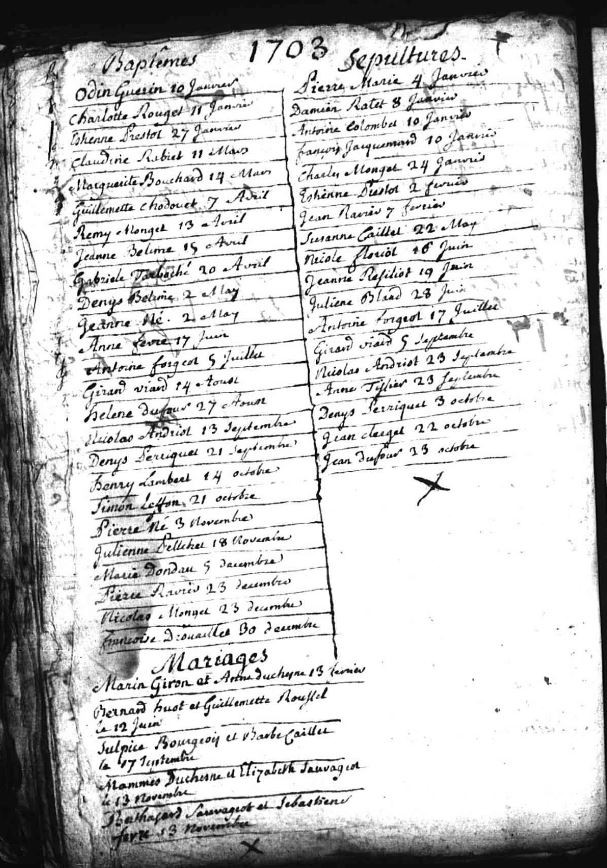 1703
Baptêmes
Odin Guerin 10 Janvier
Charlotte Rouget 11 Janvier
Etienne Prestot 27 Janvier
Claudine Rabiet 11 Mars
Marguerite Bouchard 14 Mars
Guillemette Chodouet 7 Avril
Remy Monget 13 Avril
Jeanne Belime 15 Avril
Gabriele 20 Avril
Denys Belime 2 May
Jeanne Né 2 May
Anne fevre 17 Juin
Antoine forgeot 5 Juillet
Girard viard 14 Aoust
helene dufour 27 Aoust
Nicolas Andriot 13 Septembre
Denys Perriquet 21 Septembre
henry Lambert 14 octobre
Simon 21 octobre
Pierre Né 3 Novembre
Julienne Pelletret 18 Novembre
Marie Dondau 5 decembre
Pierre Ravier 23 decembre
Nicolas Monget 23 decembre
francoise Drouaillet 30 decembre
Sepultures
Pierre Marie 4 Janvier
Damien Ratet 8 Janvier
Antoine Colombet 10 Janvier
francois Jacquemard 10 Janvier
Charles Monget 24 Janvier
Etienne Prestot 2 fevrier
Jean Ravier 7 fevrier
Susanne Caillet 22 May
Nicole floriot 16 Juin
Jeanne 19 Juin
Juliene 28 Juin
Antoine forgeot 17 Juillet
Girard viard 5 Septembre
Nicolas Andriot 23 Septembre
Anne Tissier 23 Septembre
Denys Perriquet 3 octobre
Jean clerget 22 octobre
Jean dufour 23 octobre
Mariages
Marin Giron et Anne duchesne 13 fevrier
Bernard huot et Guillemette Roussel
le 12 Juin
Sulpice Bourgeois et Barbe Caillet
le 17 Septembre
Mammes Duchesne et Elizabeth Sauvageot
le 13 Novembre
Balthasard Sauvageot et Sebastiene
fevre 13 Novembre